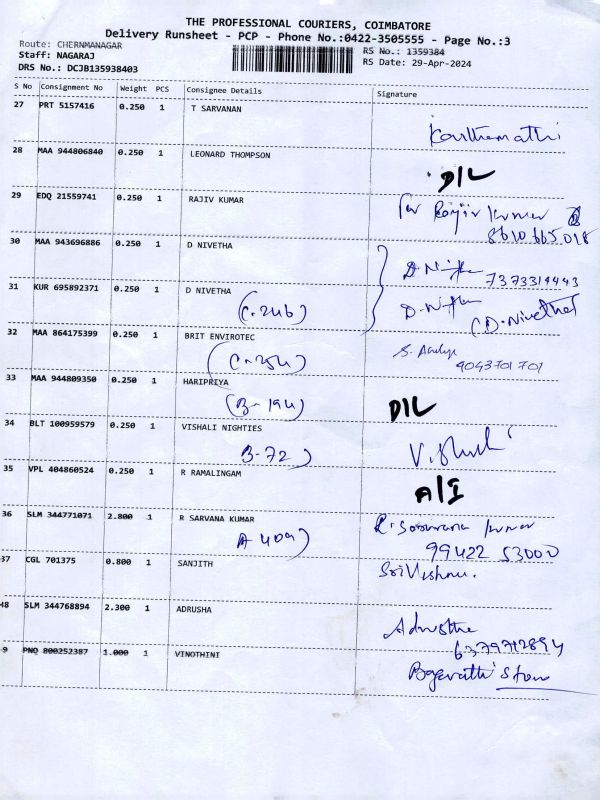 THE PROFESSIONAL COURIERS, COIMBATORE
Delivery Runsheet - PCP - Phone No.:0422-3505555 - Page No.:3
Route: CHERNMANAGAR
RS No.: 1359384
Staff: NAGARAJ
RS Date: 29-Apr-2024
DRS No.: DCJB135938403
S No Consignment No Weight PCS Consignee Details Signature
27 PRT 5157416 0.250 1 T SARVANAN
28 MAA 944806840 0.250 1 LEONARD THOMPSON
D/L
29 EDQ 21559741 0.250 1 RAJIV KUMAR
8610665018
30 MAA 943696886 0.250 1 D NIVETHA
7373319443
31 KUR 695892371 0.250 1 D NIVETHA
(C-246)
32 MAA 864175399 0.250 1 BRIT ENVIROTEC
(C-254)
9043701701
33 MAA 944809350 0.250 1 HARIPRIYA
(B-194)
D/L
34 BLT 100959579 0.250 1 VISHALI NIGHTIES
B-72)
35 VPL 404860524 0.250 1 R RAMALINGAM
A/I
36 SLM 344771071 2.800 1 R SARVANA KUMAR
A 409)
99422 53000
37 CGL 701375 0.800 1 SANJITH
48 SLM 344768894 2.300 1 ADRUSHA
6379712894
9 PNQ 800252387 1.000 1 VINOTHINI